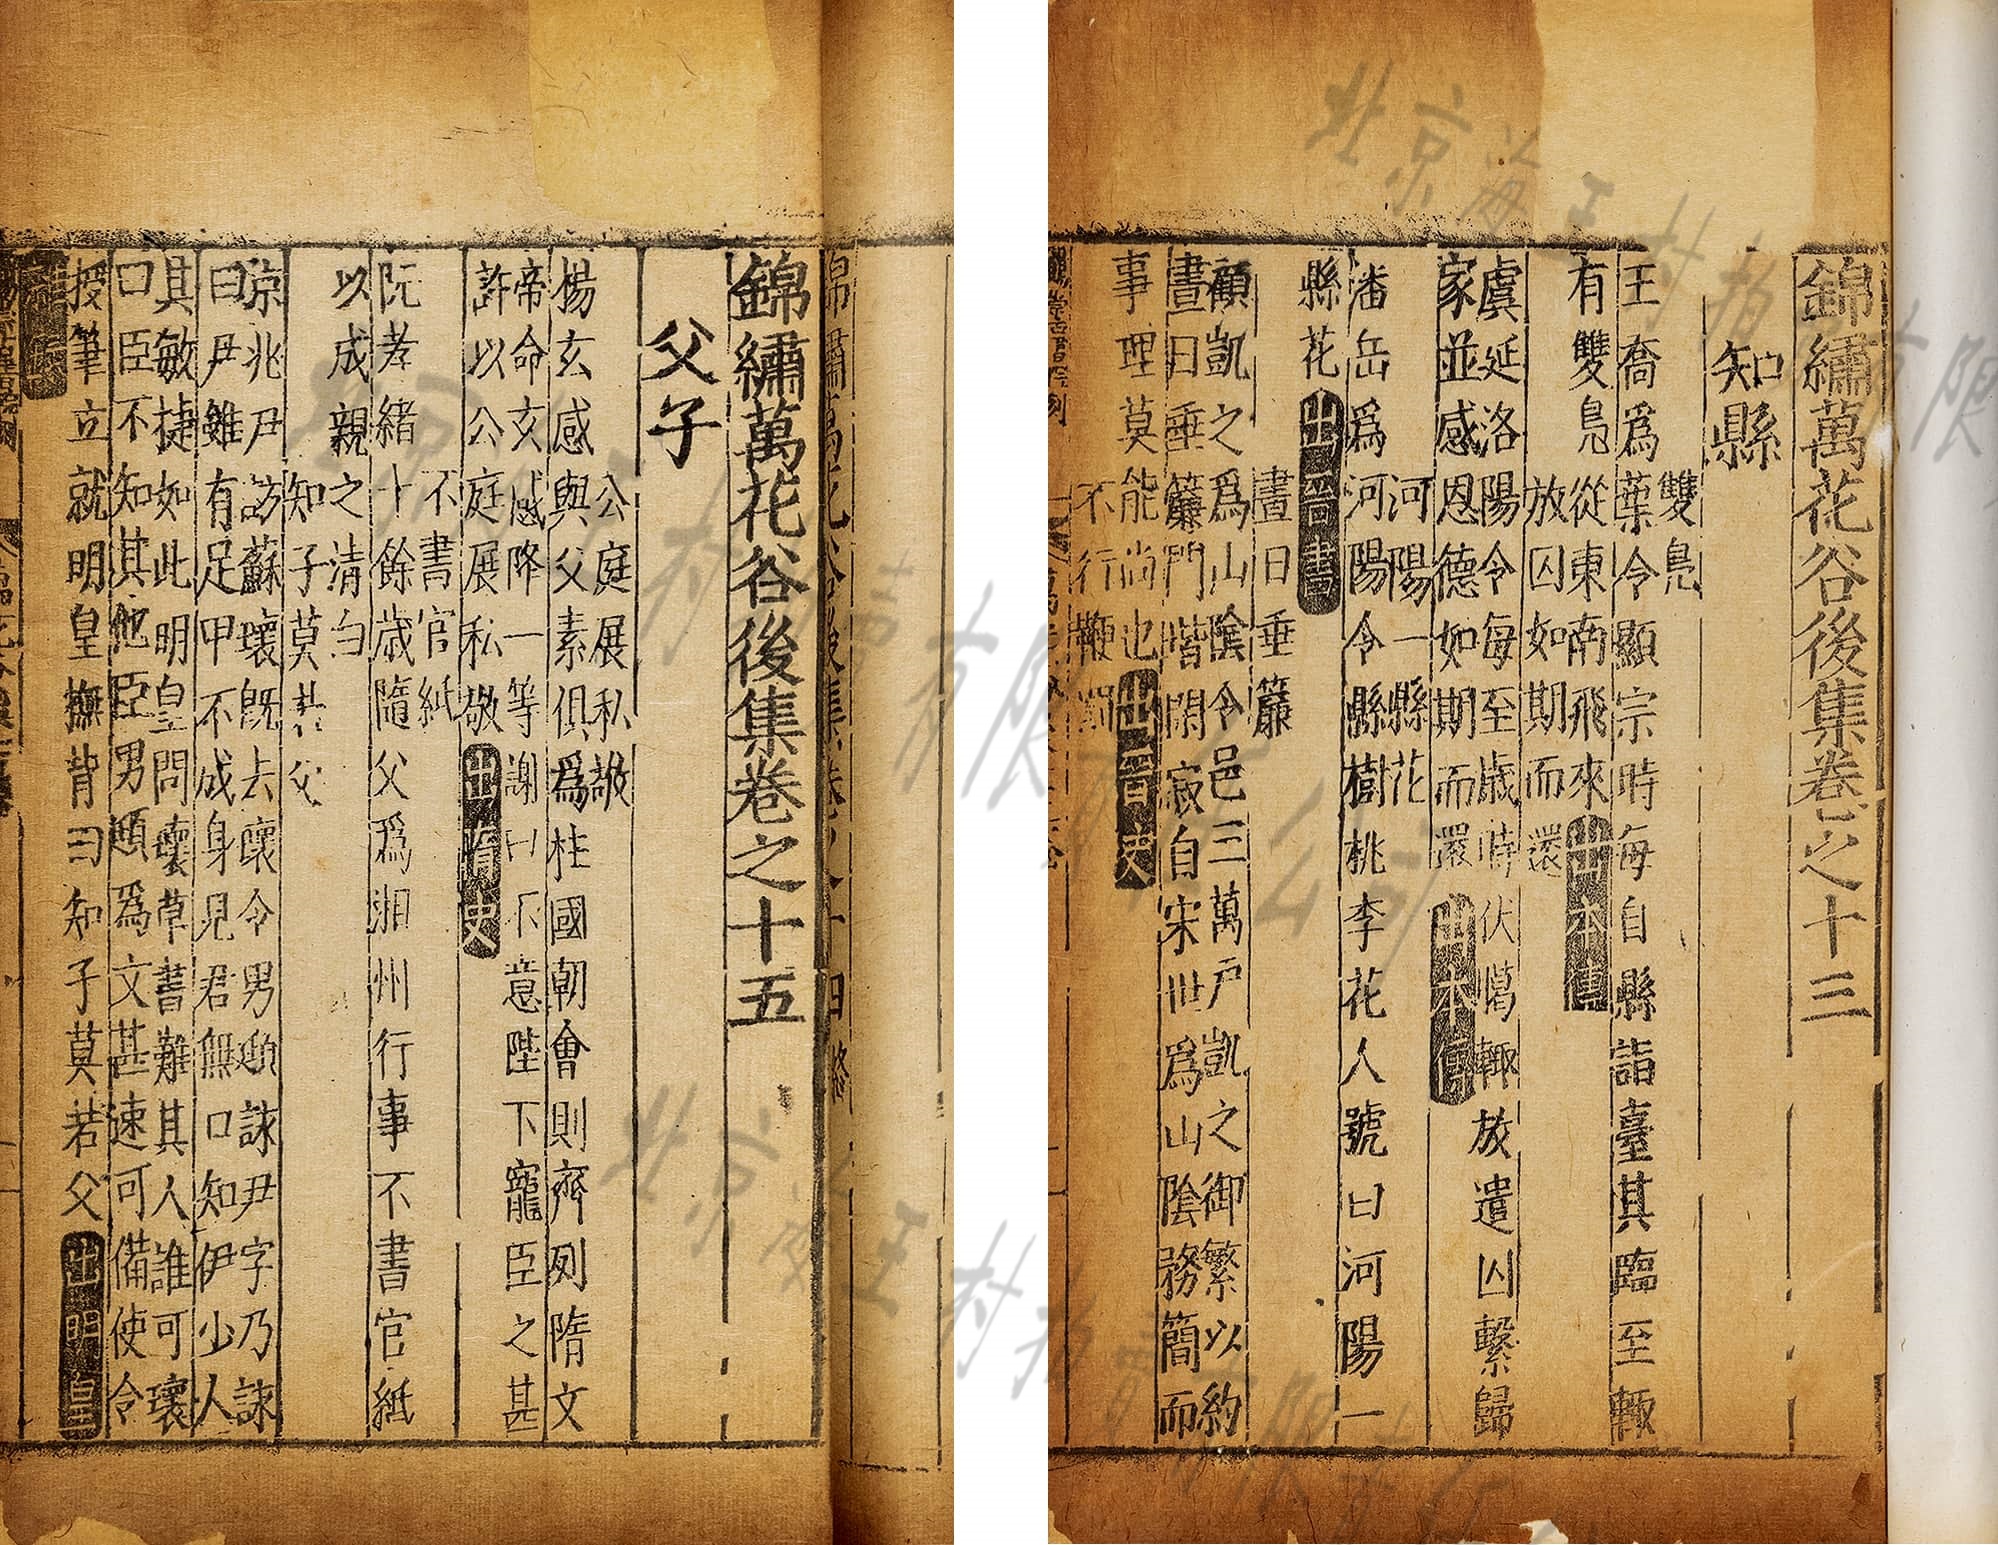 錦繡萬花谷後集卷之十三
知縣
雙鳧
王喬爲葉令顯宗時每自縣詣臺其臨至輙
有雙鳧從東南飛來出本傳
放囚如期而還
虞延洛陽令每至歲時伏臈輙放遣囚繫歸
家並感恩德如期而還出本傳
河陽一縣花
潘岳爲河陽令縣樹桃李花人號曰河陽一
縣花出晉書
晝日垂簾
顧凱之爲山陰令邑三萬戸凱之御繁以約
晝日垂簾門堦閑寂自宋世爲山陰務簡而
事理莫能尚也出晉史
不行鞭罰
錦繡萬花谷後集卷之十五
父子
公庭展私敬
楊玄感與父素俱爲柱國朝會則齊列隋文
帝命玄感降一等謝曰不意陛下寵臣之甚
許以公庭展私敬出隋史
不書官紙
阮孝緒十餘歲隨父爲湘州行事不書官紙
以成親之清白
知子莫若父
京兆尹訪蘇瓌旣去瓌令男頲詠尹字乃詠
曰尹雖有足甲不成身見君無口知伊少人
其敏捷如此明皇問瓌草書難其人誰可瓌
曰臣不知其他臣男頲爲文甚速可備使令
授筆立就明皇撫背曰知子莫若父出明皇
錦繡萬花谷後集卷之十四終
北京海王村拍賣有限責任公司
北京海王村拍賣有限責任公司